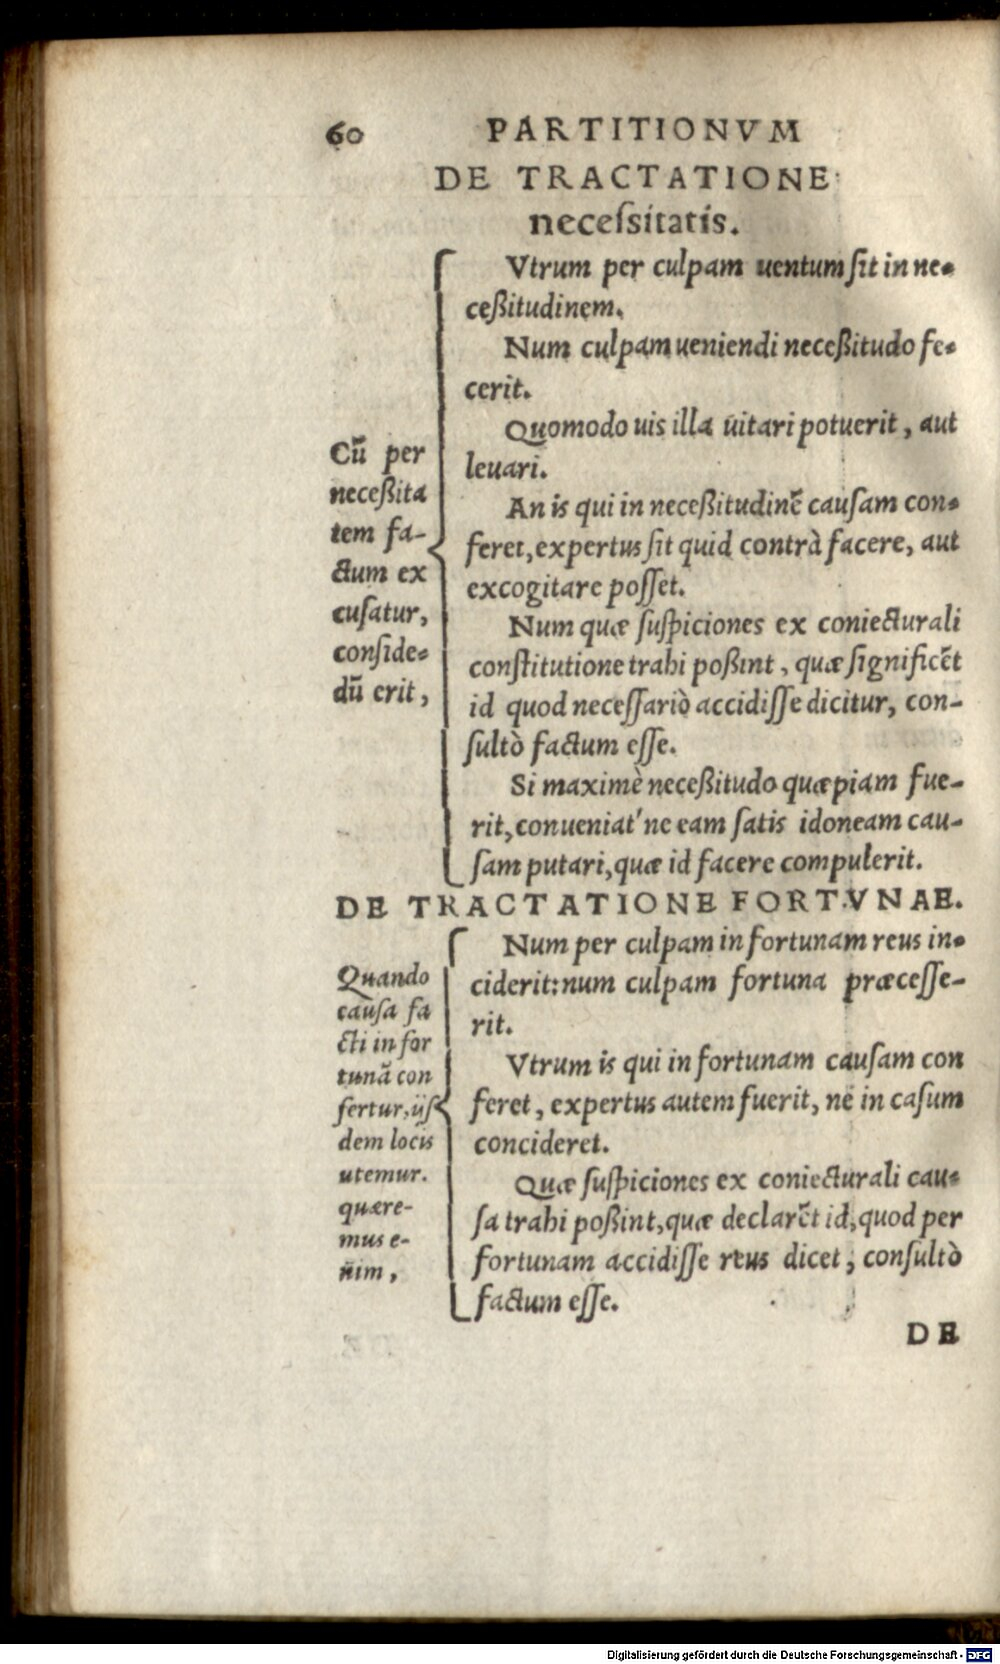 60 PARTITIONVM
DE TRACTATIONE
neceſsitatis.
Cũ per
neceßita
tem fa-
ctum ex
cuſatur,
conſide-
dũ erit,
Vtrum per culpam uentum ſit in ne-
ceßitudinem.
Num culpam ueniendi neceßitudo fe-
cerit.
Quomodo uis illa uitari potuerit, aut
leuari.
An is qui in neceßitudinẽ cauſam con-
feret, expertus ſit quid contrà facere, aut
excogitare poſſet.
Num quæ ſuſpiciones ex coniecturali
conſtitutione trahi poßint, quæ ſignificẽt
id quod neceſſariò accidiſſe dicitur, con-
ſultò factum eſſe.
Si maximè neceßitudo quæpiam fue-
rit, conueniat'ne eam ſatis idoneam cau-
ſam putari, quæ id facere compulerit.
DE TRACTATIONE FORTVNAE.
Quando
cauſa fa
cti in for
tunã con
fertur, ijſ
dem locis
utemur.
quære-
mus e-
nim,
Num per culpam in fortunam reus in-
ciderit: num culpam fortuna præceſſe-
rit.
Vtrum is qui in fortunam cauſam con
feret, expertus autem fuerit, ne in caſum
concideret.
Quæ ſuſpiciones ex coniecturali cau-
ſa trahi poßint, quæ declarẽt id, quod per
fortunam accidiſſe reus dicet, conſultò
factum eſſe.
DE
Digitalisierung gefördert durch die Deutsche Forschungsgemeinschaft - DFG